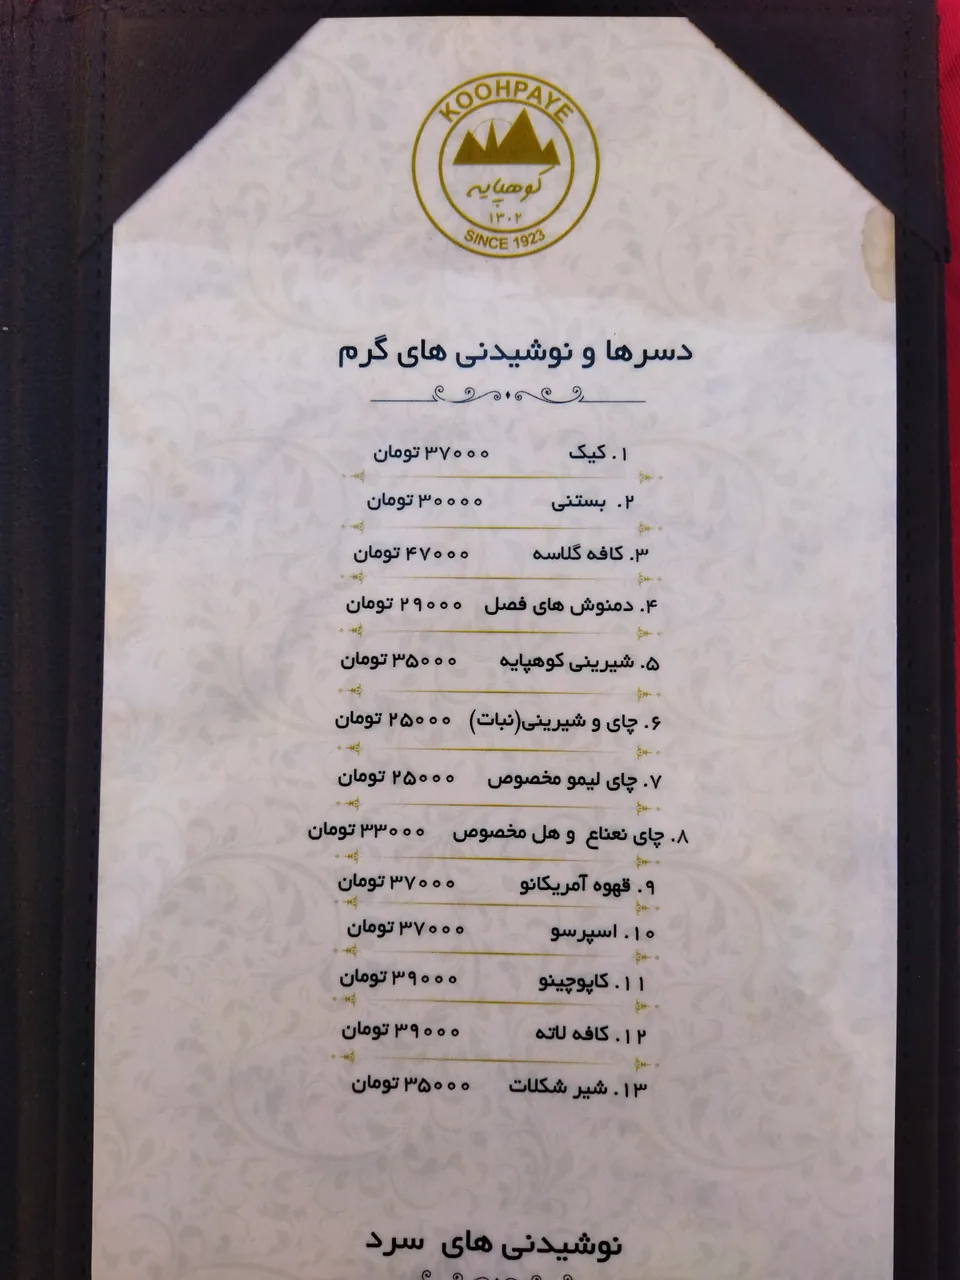 KOOHPAYE
کوهپایه
۱۳۰۲
SINCE 1923
دسرها و نوشیدنی های گرم
۱. کیک ۳۷۰۰۰ تومان
۲. بستنی ۳۰۰۰۰ تومان
۳. کافه گلاسه ۴۷۰۰۰ تومان
۴. دمنوش های فصل ۲۹۰۰۰ تومان
۵. شیرینی کوهپایه ۳۵۰۰۰ تومان
۶. چای و شیرینی(نبات) ۲۵۰۰۰ تومان
۷. چای لیمو مخصوص ۲۵۰۰۰ تومان
۸. چای نعناع و هل مخصوص ۳۳۰۰۰ تومان
۹. قهوه آمریکانو ۳۷۰۰۰ تومان
۱۰. اسپرسو ۳۷۰۰۰ تومان
۱۱. کاپوچینو ۳۹۰۰۰ تومان
۱۲. کافه لاته ۳۹۰۰۰ تومان
۱۳. شیر شکلات ۳۵۰۰۰ تومان
نوشیدنی های سرد